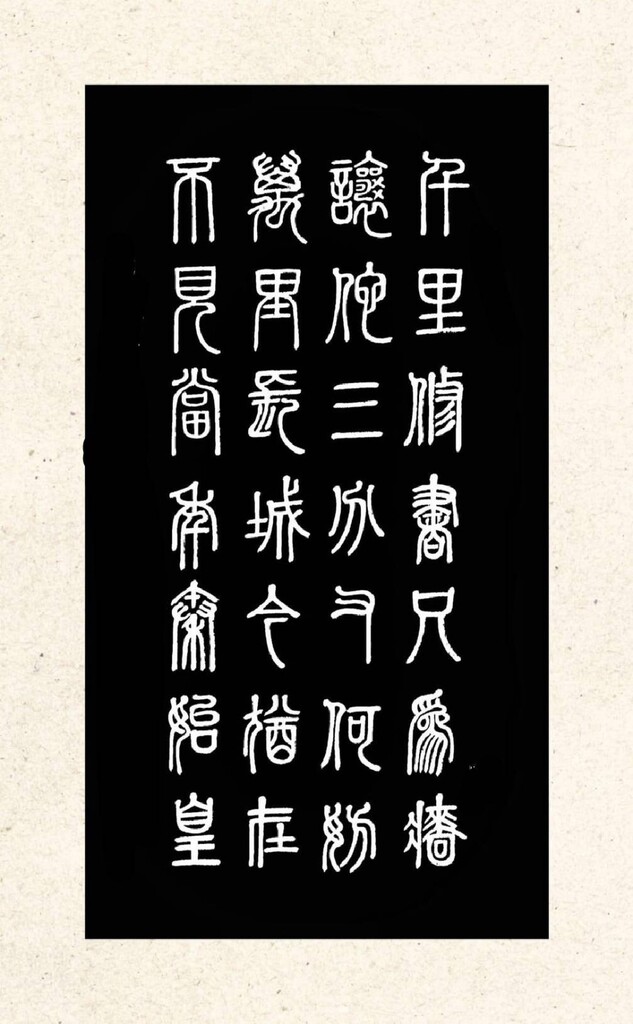 千里修書只為牆
讓他三分又何妨
萬里長城今猶在
不見當年秦始皇